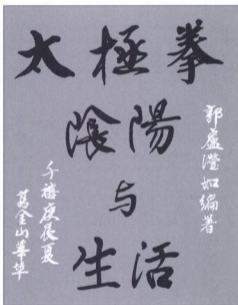 太極拳
陰陽
与
生活
郭盧澄如編著
千禧庚辰夏
舊金山華埠